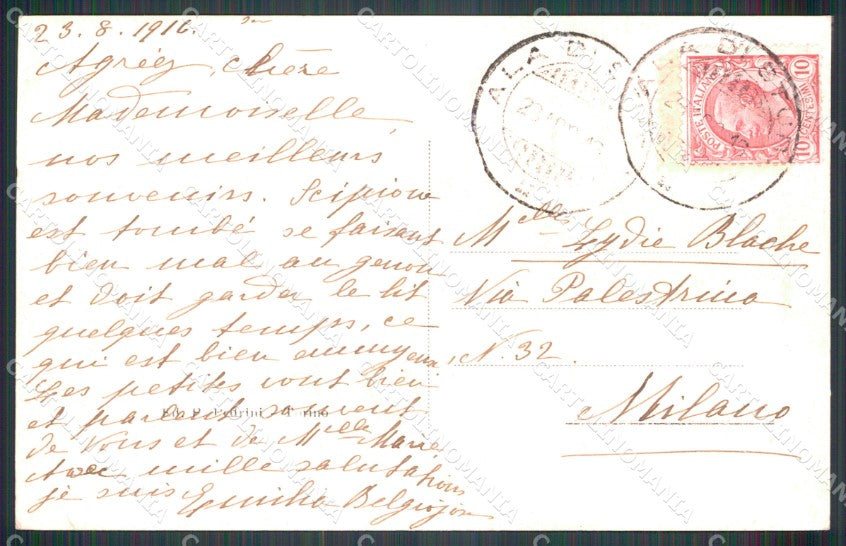 23.8.1916.
Agréez, chère
Mademoiselle,
nos meilleurs
souvenirs. Scipione
est tombé se faisant
bien mal au genou
et doit garder le lit
quelques temps, ce
qui est bien ennuyeux.
Les petites vont bien
et parlent souvent
de Vous et de Melle Marie.
Avec mille salutations
je suis Emilia Belgiojoso
Ed. P. Pedrini - Torino
ALA DI S
ALA DI STURA
POSTE ITALIANE
10
10
Melle Lydie Blache
Via Palestrina
N. 32.
Milano
CARTOLINOMANIA